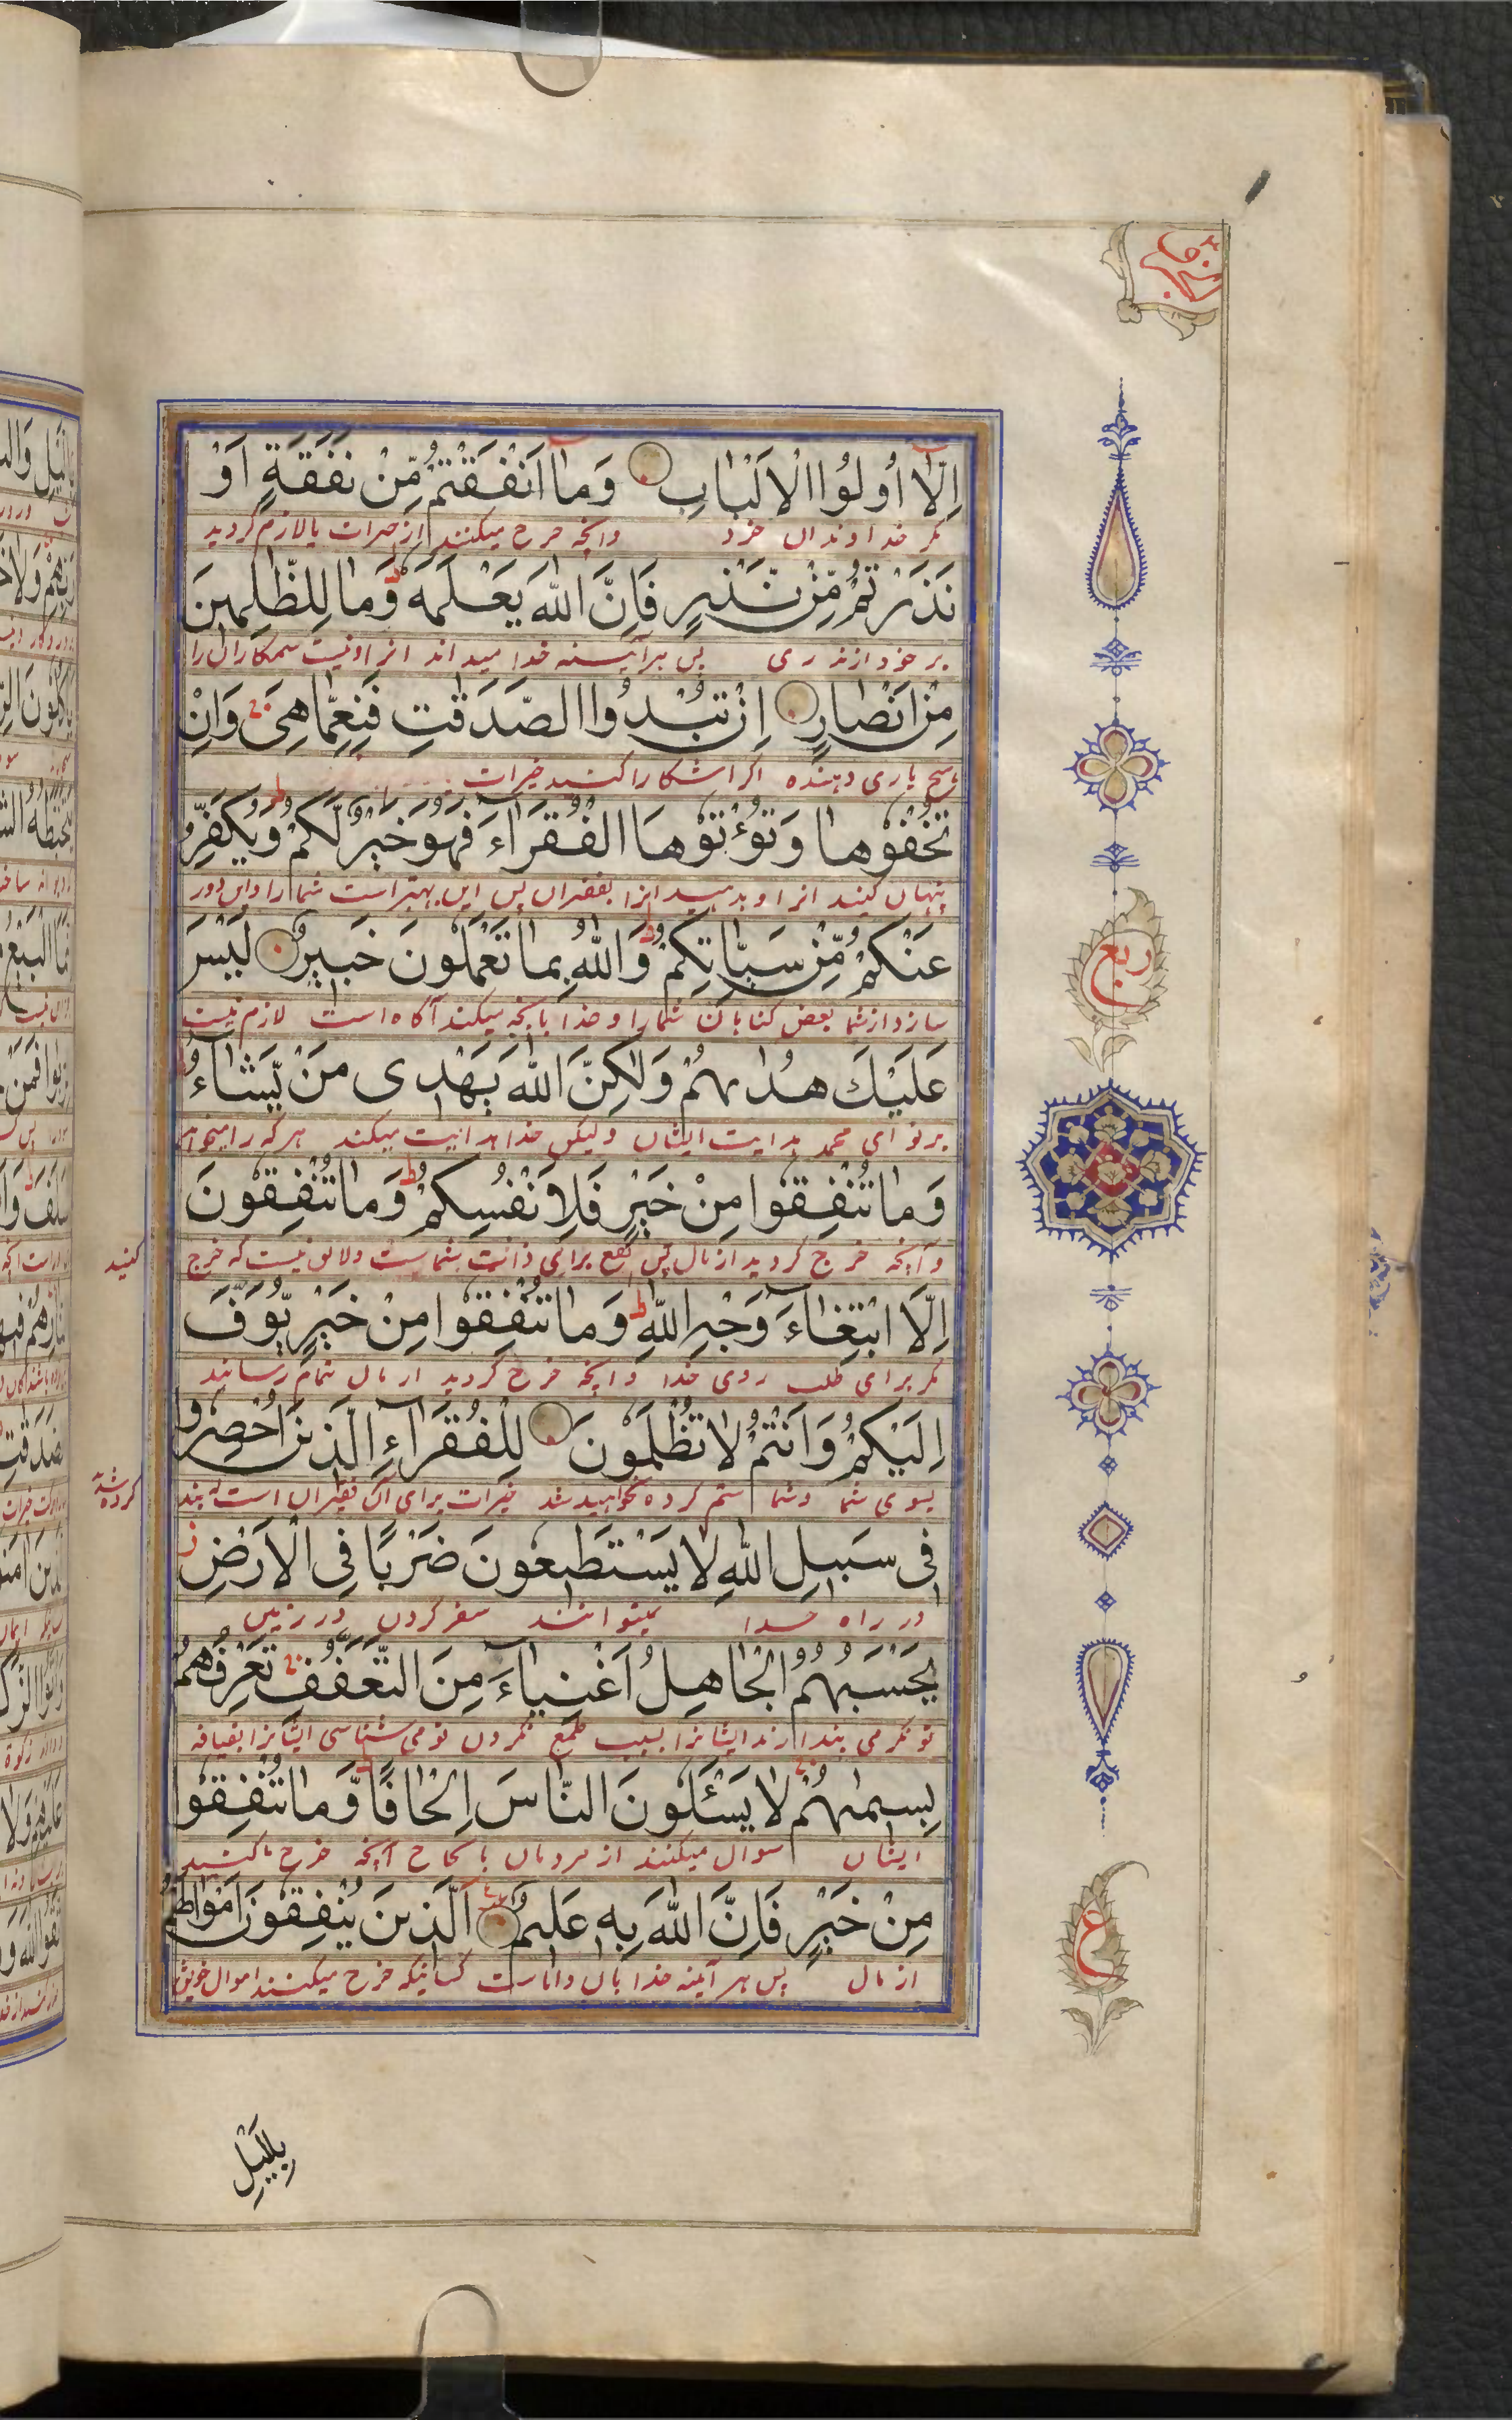 اِلَّا اُولُوا الْاَلْبَابِ وَمَا اَنْفَقْتُمْ مِّنْ نَفَقَةٍ اَوْ
مکر خداوندان خرد وانچه خرج میکنند از خیرات یا لازم کردید
نَذَرْتُمْ مِّنْ نَّذْرٍ فَاِنَّ اللّٰهَ يَعْلَمُهُ وَمَا لِلظّٰلِمِينَ
بر خود از نذری پس هرآینه خدا میداند انرا و نیست ستمکارانرا
مِنْ اَنْصَارٍ اِنْ تُبْدُوا الصَّدَقٰتِ فَنِعِمَّا هِيَ وَاِنْ
هیچ یاری دهنده اکر اشکارا کنید خیرات
تُخْفُوهَا وَتُؤْتُوهَا الْفُقَرَاءَ فَهُوَ خَيْرٌ لَّكُمْ وَيُكَفِّرُ
پنهان کنید انرا و بدهید انرا بفقیران پس این بهتر است شما را و این دور
عَنْكُمْ مِّنْ سَيِّاٰتِكُمْ وَاللّٰهُ بِمَا تَعْمَلُونَ خَبِيرٌ لَيْسَ
سازد از شما بعض کناهان شما را و خدا بانچه میکنند آکاه است لازم نیست
عَلَيْكَ هُدٰىهُمْ وَلٰكِنَّ اللّٰهَ يَهْدِى مَنْ يَّشَاءُ
بر تو ای محمد هدایت ایشان ولیکن خدا هدایت میکند هر که را میخواهد
وَمَا تُنْفِقُوا مِنْ خَيْرٍ فَلِاَنْفُسِكُمْ وَمَا تُنْفِقُونَ
وآنچه خرج کردید از مال پس نفع برای ذات شماست ولایق نیست که خرج کنید
اِلَّا ابْتِغَاءَ وَجْهِ اللّٰهِ وَمَا تُنْفِقُوا مِنْ خَيْرٍ يُّوَفَّ
مکر برای طلب روی خدا وانچه خرج کردید از مال تمام رسانند
اِلَيْكُمْ وَاَنْتُمْ لَا تُظْلَمُونَ لِلْفُقَرَاءِ الَّذِينَ اُحْصِرُوا
بسوی شما وشما ستم کرده نخواهید شد خیرات برای آن فقیران است که بند کرده شده
فِى سَبِيلِ اللّٰهِ لَا يَسْتَطِيعُونَ ضَرْبًا فِى الْاَرْضِ
در راه خدا نمیتوانند سفر کردن در زمین
يَحْسَبُهُمُ الْجَاهِلُ اَغْنِيَاءَ مِنَ التَّعَفُّفِ تَعْرِفُهُمْ
تونکر می پندارند ایشانرا بسبب طمع نکردن تو می شناسی ایشانرا بقیافه
بِسِيمٰىهُمْ لَا يَسْئَلُونَ النَّاسَ اِلْحَافًا وَّمَا تُنْفِقُوا
ایشان سوال میکنند از مردمان آنچه خرج کنید
مِنْ خَيْرٍ فَاِنَّ اللّٰهَ بِهِ عَلِيمٌ اَلَّذِينَ يُنْفِقُونَ اَمْوَالَهُمْ
از مال پس هر آینه خدا بان داناست کسانیکه خرج میکنند اموال خویش
بِاللَّيْلِ
ربع
ع